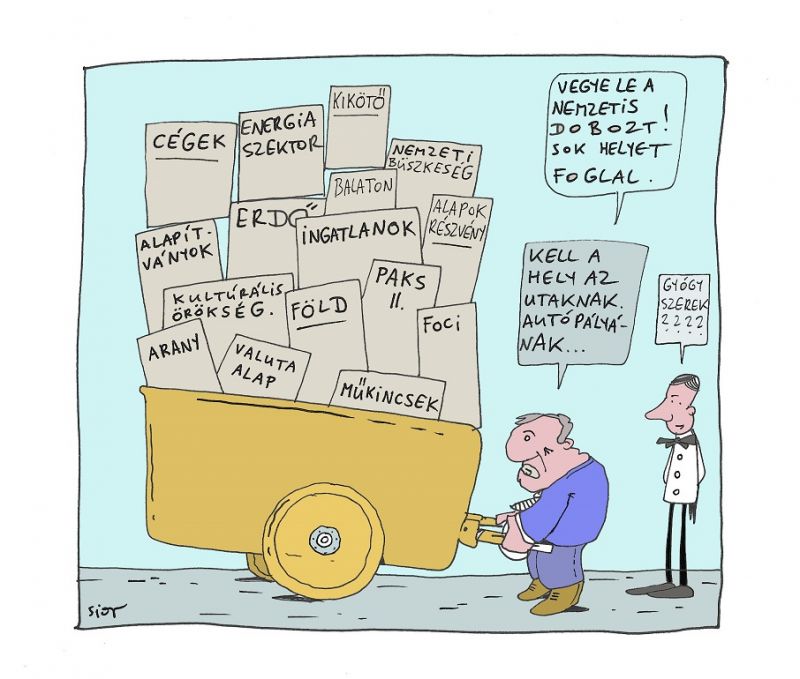 CÉGEK
ENERGIA
SZEKTOR
KIKÖTŐ
NEMZETI
BÜSZKESÉG
BALATON
ALAPOK
RÉSZVÉNY
ALAPÍT-
VÁNYOK
ERDŐ
INGATLANOK
KULTÚRÁLIS
ÖRÖKSÉG.
FÖLD
PAKS
II.
FOCI
ARANY
VALUTA
ALAP
MŰKINCSEK
VEGYE LE A
NEMZETIS
DOBOZT!
SOK HELYET
FOGLAL.
KELL A
HELY AZ
UTAKNAK.
AUTÓPÁLYÁ-
NAK...
GYÓGY
SZEREK
????
SIOT